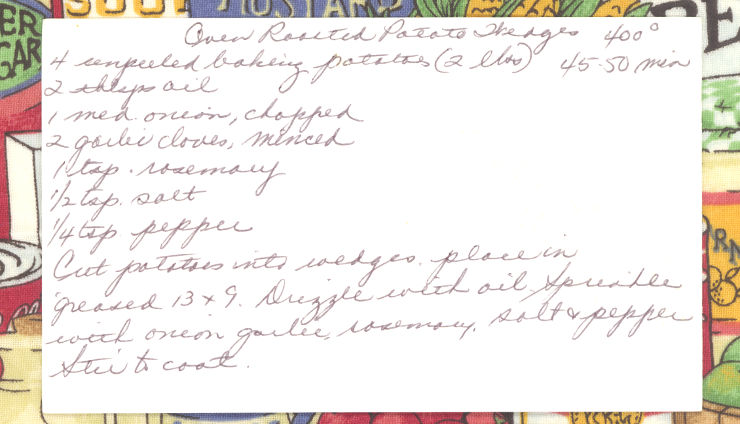 ER
GAR
Oven Roasted Potato Wedges 400°
4 unpeeled baking potatoes (2 lbs) 45-50 min
2 oil
1 med. onion, chopped
2 garlic cloves, minced
1 tsp. rosemary
1/2 tsp. salt
1/4 tsp pepper
Cut potatoes into wedges. place in
greased 13 x 9. Drizzle with oil. Sprinkle
with onion garlic, rosemary, salt & pepper
Stir to coat.
RN